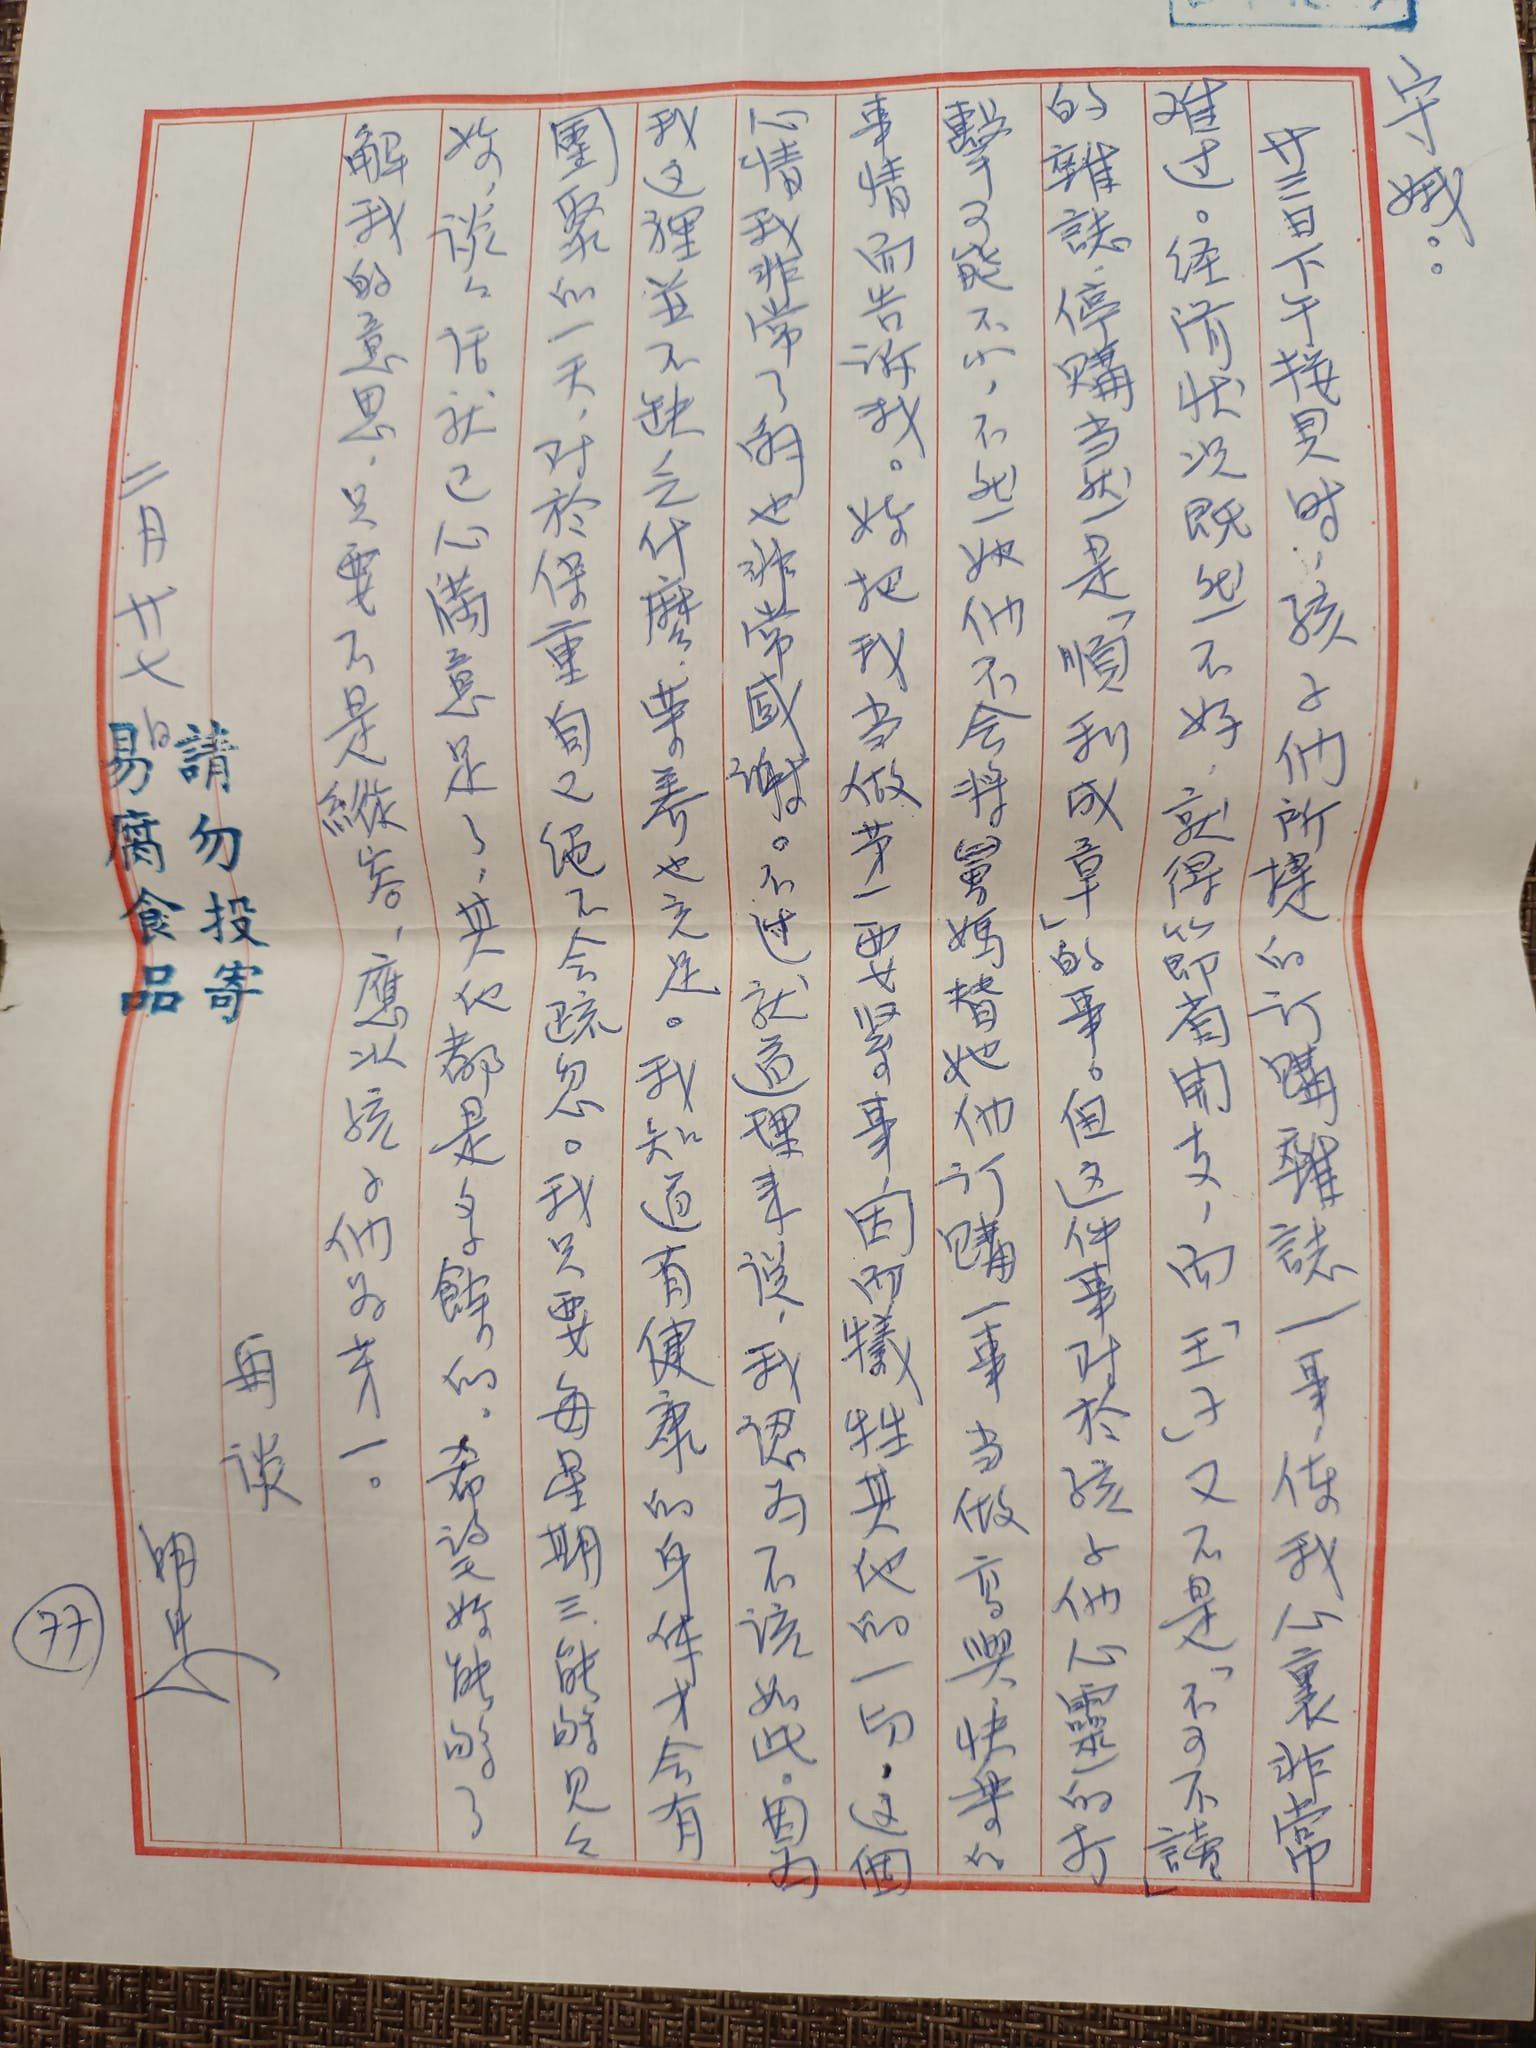 守娥。
廿三日下午接見時，孩子們所提的訂購雜誌一事，使我心裏非常
难过。経済状況既然不好，就得節省開支，而「王子」又不是「不可不讀」
的雜誌，停購当然是「順利成章」的事。但这件事对於孩子們心靈的打
擊可能不小，不然她們不会将
媽替她們訂購一事当做高興快樂的
事情而告訴我。妳把我当做第一要緊事，因而犧牲其他的一切，这個
心情我非常了解也非常感謝。不过就道理来説，我認为不该如此。因为
我这裡並不缺乏什麼，营養也充足。我知道有健康的身体才会有
團聚的一天，对於保重自己絕不会疏忽。我只要每星期三能夠見見
妳，談談话就已心滿意足了，其他都是多餘的。希望妳能夠了
解我的意思，只要不是縱容，應以孩子們为第一。
再談
二月廿七日
請勿投寄
易腐食品
77